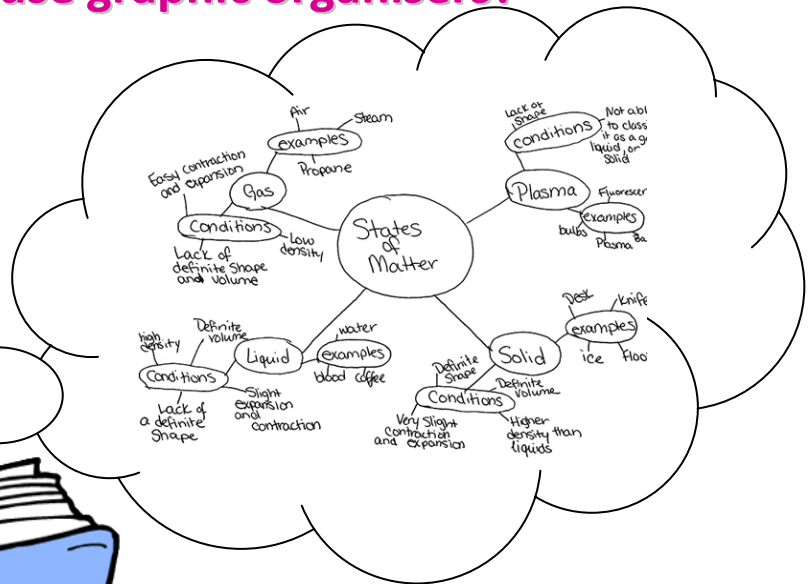 use graphic organisers?
States
of
Matter
Gas
examples
Air
Steam
Propane
Conditions
Easy contraction
and expansion
Low
density
Lack of
definite Shape
and volume
Plasma
conditions
Lack of
Shape
Not abl
to class
it as a g
liquid, or
solid
examples
Fluorescer
bulbs
Plasma Ba
Liquid
examples
water
blood coffee
Conditions
high
density
Definite
volume
Slight
expansion
and
contraction
Lack of
a definite
Shape
Solid
examples
Desk
knife
ice
floo
Conditions
Definite
Shape
Definite
volume
Very Slight
contraction
and expansion
Higher
density than
liquids